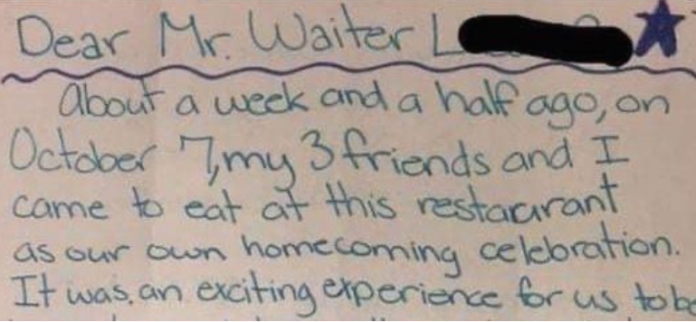 Dear Mr. Waiter L
About a week and a half ago, on
October 7, my 3 friends and I
came to eat at this restaurant
as our own homecoming celebration.
It was an exciting experience for us to b